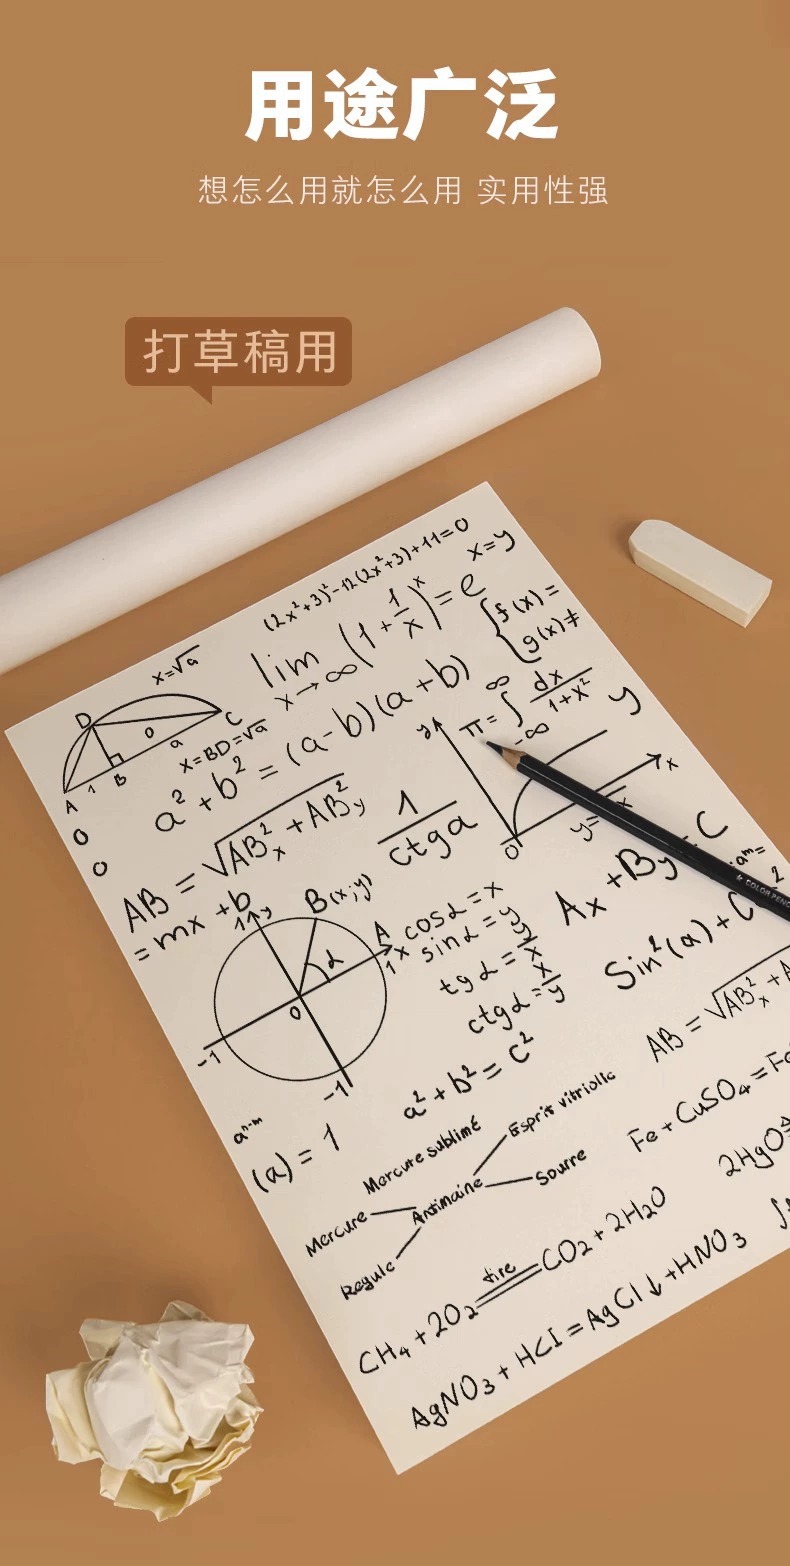 用途广泛
想怎么用就怎么用 实用性强
打草稿用
(2x²+3)²-12(2x²+3)+11=0
x=y
x=√a
lim x→∞ (1+1/x)ˣ=e
{f(x)=
g(x)≠
D
C
0
a
A 1 B
x=BD=√a
a²+b²=(a-b)(a+b)
π=∫ ∞ -∞ dx/1+x²
y
y
x
0
y=
x
0
0
AB=√AB²ₓ+AB²y
1/ctga
Ax+By=C
=mx+b
1 y
B(x;y)
A
1 x
α
0
-1
-1
cosα=x
sinα=y
tgα=y/x
ctgα=x/y
Sin²(a)+C
2
AB=√AB²ₓ+A
a²+b²=c²
aⁿ⁻ᵐ
(a)=1
Mercure sublimé
Esprit vitriolle
Mercure
Antimoine
Sourre
Regule
Fe+CuSO₄=Fe
2HgO
CH₄+2O₂ fire CO₂+2H₂O
AgNO₃+HCl=AgCl↓+HNO₃
COLOR PENC